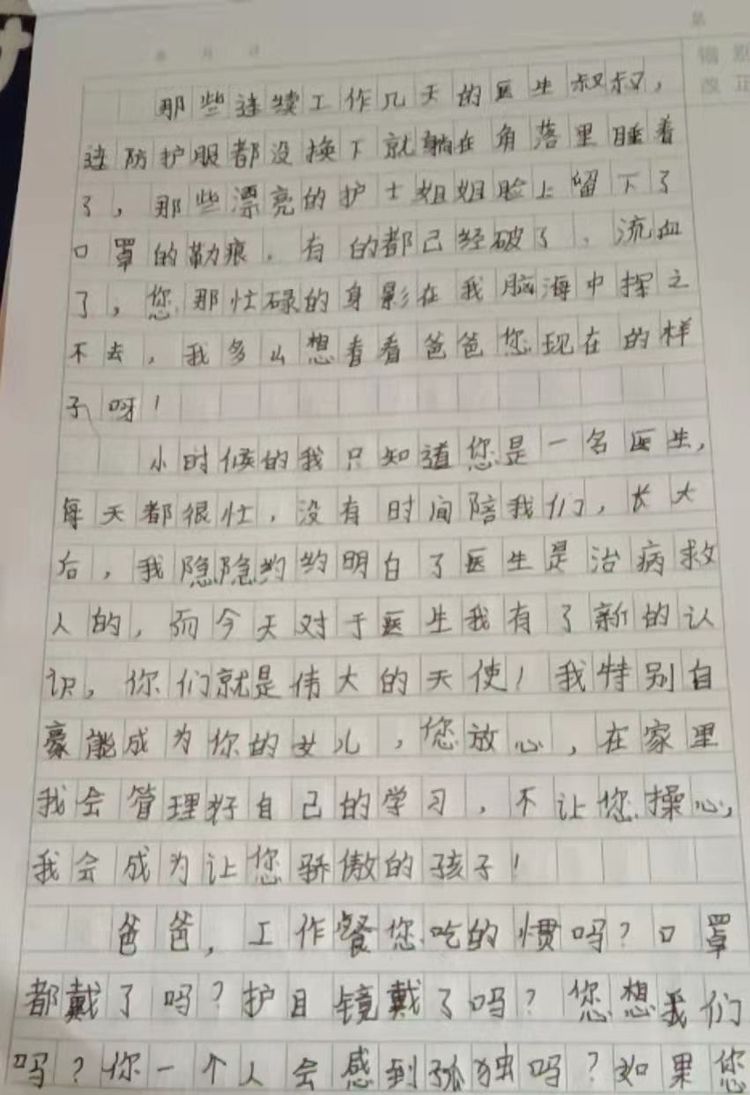 那些连续工作几天的医生叔叔，
连防护服都没换下就躺在角落里睡着
了，那些漂亮的护士姐姐脸上留下了
口罩的勒痕。有的都已经破了、流血
了，您那忙碌的身影在我脑海中挥之
不去，我多么想看看爸爸您现在的样
子呀！
小时候的我只知道您是一名医生，
每天都很忙，没有时间陪我们，长大
后，我隐隐约约明白了医生是治病救
人的，而今天对于医生我有了新的认
识，你们就是伟大的天使！我特别自
豪能成为你的女儿，您放心，在家里
我会管理好自己的学习，不让您操心，
我会成为让您骄傲的孩子！
爸爸，工作餐您吃的惯吗？口罩
都戴了吗？护目镜戴了吗？您想我们
吗？你一个人会感到孤独吗？如果您